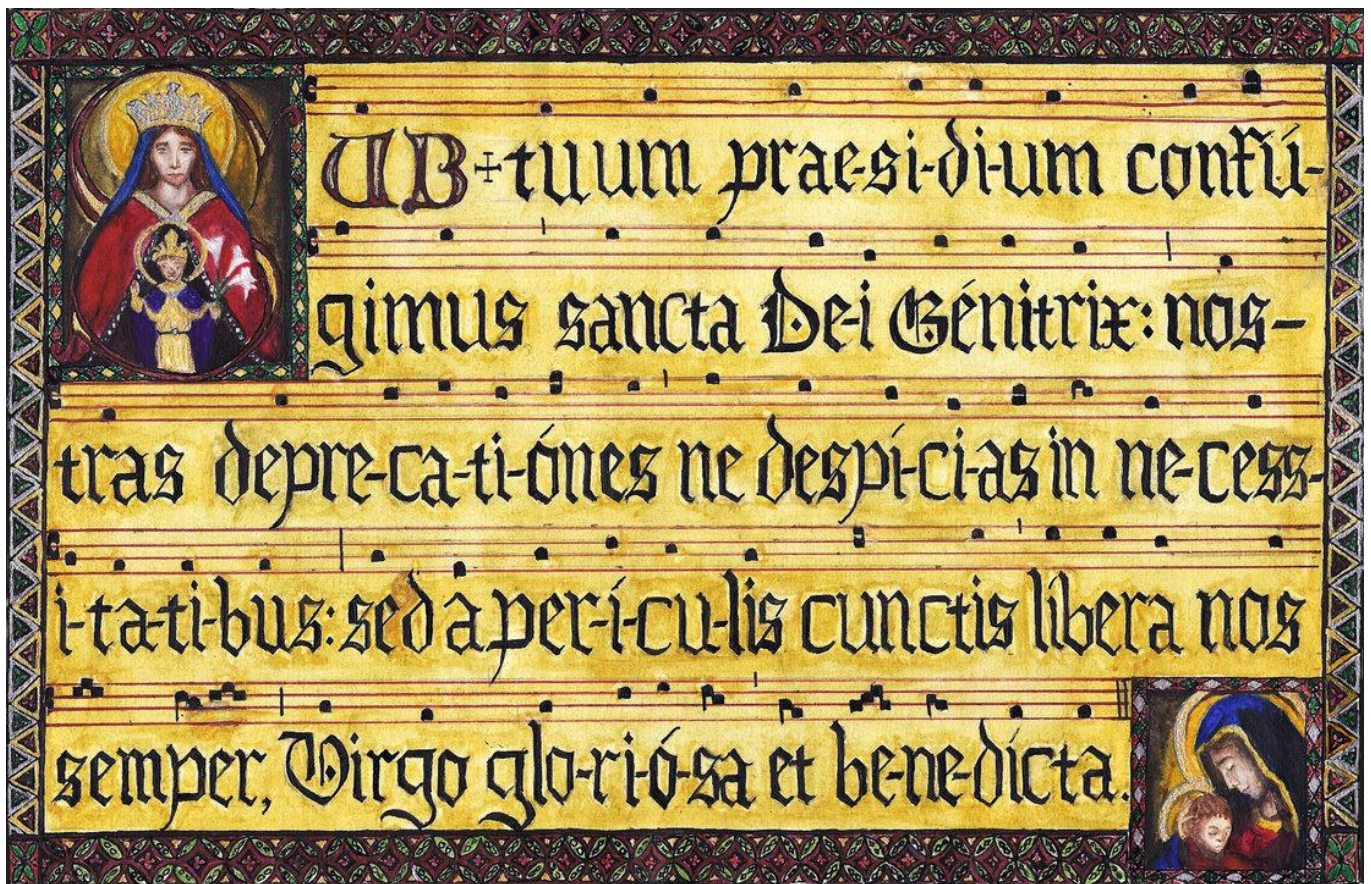 SUB+tuum prae-si-di-um confú-
gimus sancta De-i Génitrix: nos-
tras depre-ca-ti-ónes ne despí-ci-as in ne-cess-
i-ta-ti-bus: sed a per-í-cu-lis cunctis libera nos
semper, Virgo glo-ri-ó-sa et be-ne-dícta.